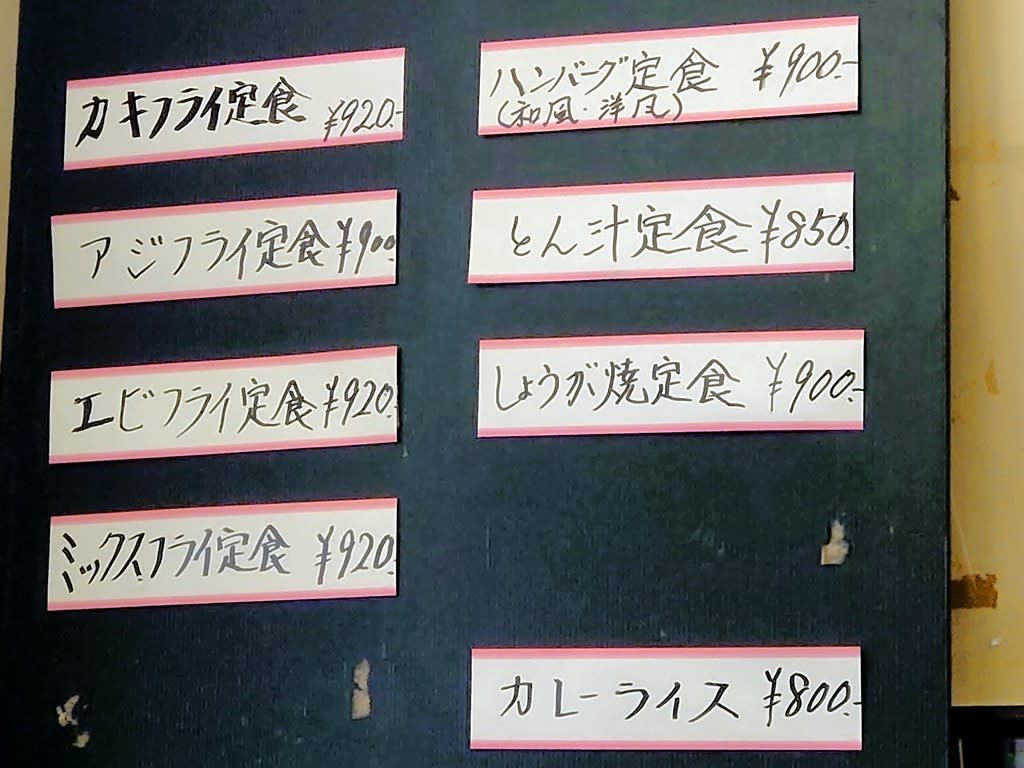 カキフライ定食 ¥920.-
アジフライ定食 ¥900
エビフライ定食 ¥920.-
ミックスフライ定食 ¥920.
ハンバーグ定食 ¥900.-
(和風・洋風)
とん汁定食 ¥850.
しょうが焼定食 ¥900.-
カレーライス ¥800.-